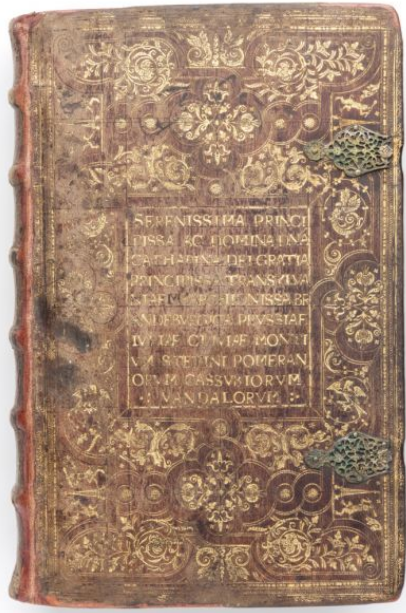 SERENISSIMA PRINCI
PISSA AC DOMINA DNA
CATHARINA DEI GRATIA
PRINCIPISSA TRANSYLVA
NIAE MARCHIONISSA BR
ANDEBVRGICA PRVSSIAE
IVLIAE CLIVIAE MONTI
VM STETINI POMERAN
ORVM CASSVBIORVM
VANDALORVM